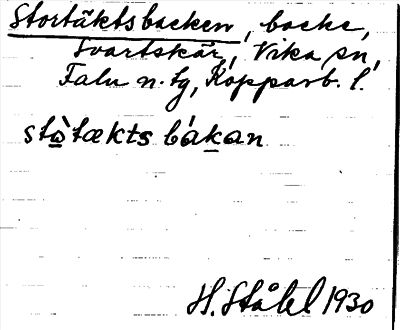 Stortäktsbacken, backe,
Svartskär, Vika sn,
Falu n. tg, Kopparb. l.
stò̱tækts bákan
H. Ståhl 1930